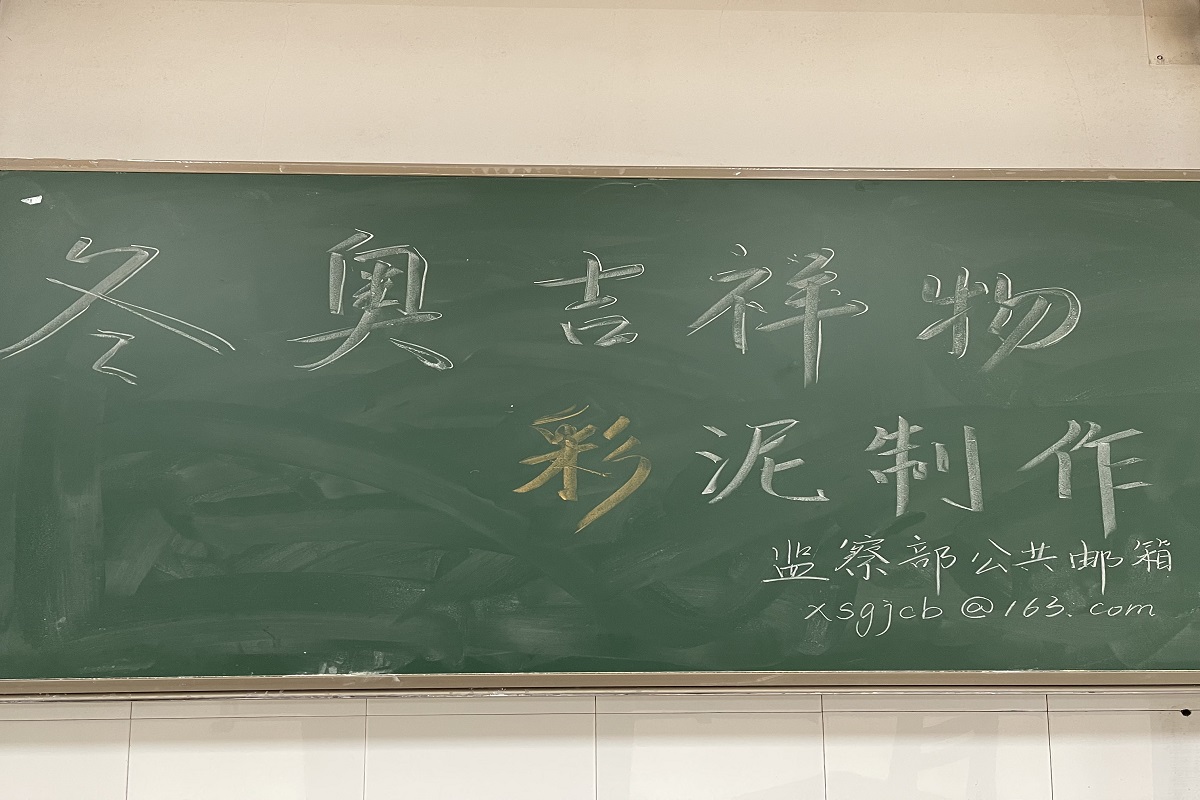 冬奥吉祥物
彩泥制作
监察部公共邮箱
xsgjcb@163.com